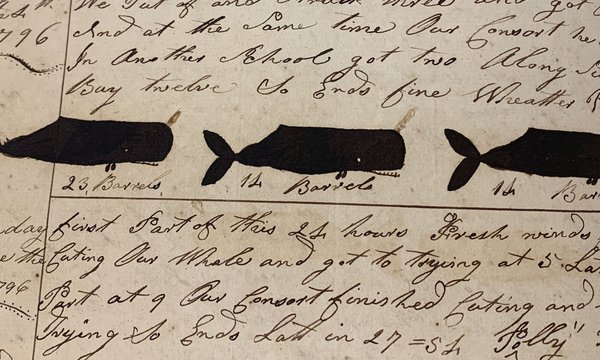 th
1796
We put of and Struck three and got
And at the Same time Our Consort he
In Another School got two Along Si
Bay twelve So Ends fine Wheatter
23 Barrels
14 Barrels
14 Bar
day
the
1796
first Part of this 24 hours Fresh winds
Cuting Our Whale and got to trying at 5 Lat
Part at 9 Our Consort finished Cuting and
Trying So Ends Latt in 27=54 Polly